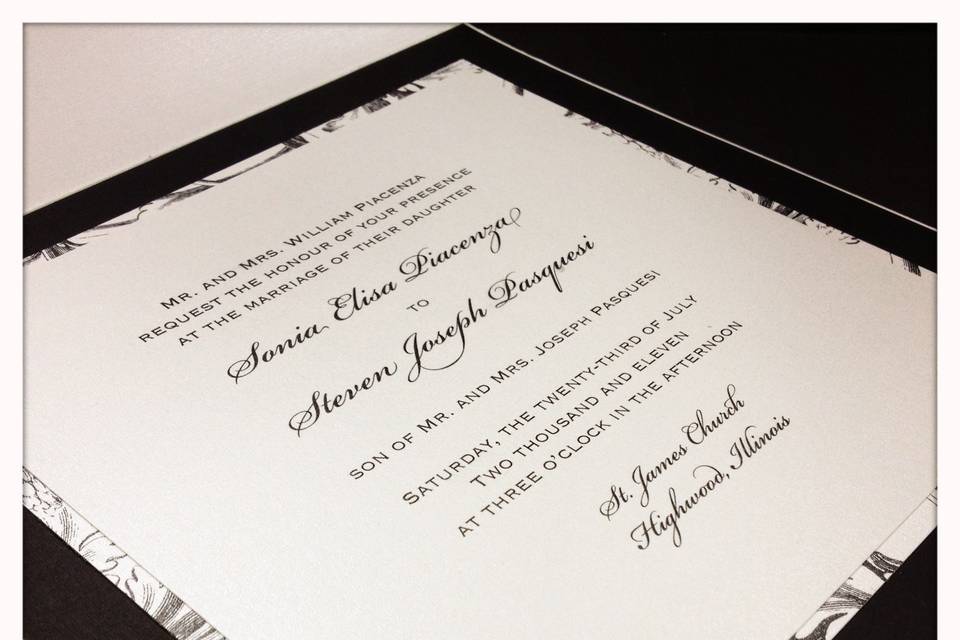 Mr. and Mrs. William Piacenza
request the honour of your presence
at the marriage of their daughter
Sonia Elisa Piacenza
to
Steven Joseph Pasquesi
son of Mr. and Mrs. Joseph Pasquesi
Saturday, the twenty-third of July
Two thousand and eleven
at three o'clock in the afternoon
St. James Church
Highwood, Illinois